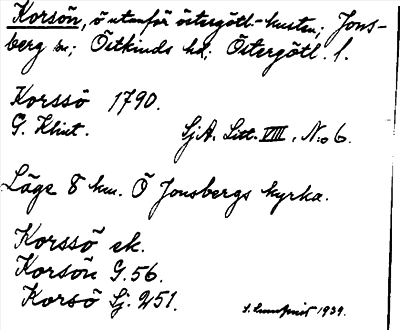 Korsön, ö utanför östergötl-kusten; Jons-
berg sn; Östkinds hd; Östergötl. l.
Korssö 1790.
G. Klint. SjA. Litt. VIII, No 6.
Läge 8 km. Ö Jonsbergs kyrka.
Korssö ek.
Korsön G. 56.
Korsö Sj. 251.
1939.